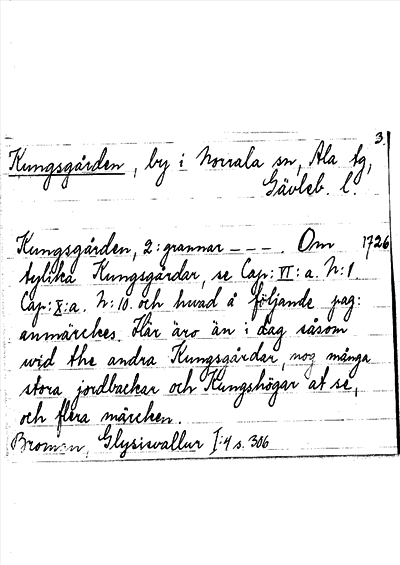 3.
Kungsgården, by i Norrala sn, Ala tg,
Gävleb. l.
Kungsgården, 2: grannar --- Om 1726
tylika Kungsgårdar, se Cap: VI: a. N: 1
Cap: X: a. N: 10. och hvad å följande pag:
anmärckes. Här äro än i dag såsom
wid the andra Kungsgårdar, nog många
stora jordbackar och Kungshögar at se,
och flera märcken.
Broman, Glysisvallur I: 4 s. 306